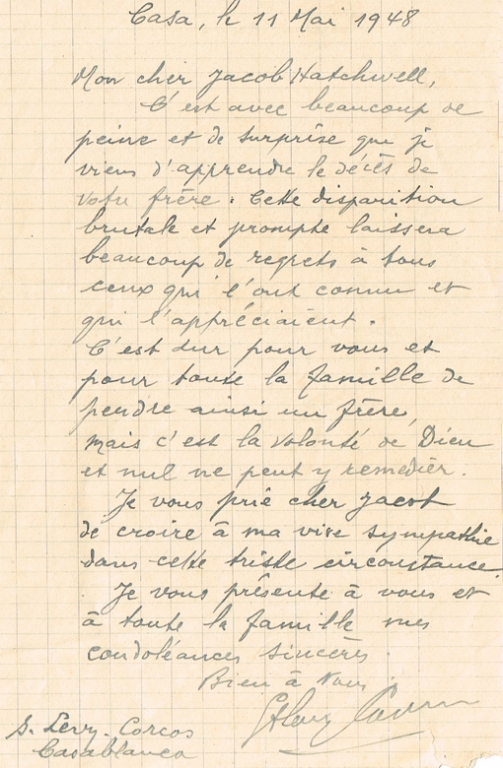 Casa, le 11 Mai 1948
Mon cher Jacob Hatchwell,
C'est avec beaucoup de
peine et de surprise que je
viens d'apprendre le décès de
votre frère. Cette disparition
brutale et prompte laissera
beaucoup de regrets à tous
ceux qui l'ont connu et
qui l'appréciaient.
C'est dur pour vous et
pour toute la famille de
perdre ainsi un frère,
mais c'est la volonté de Dieu
et nul ne peut y remedier.
Je vous prie cher Jacob
de croire à ma vive sympathie
dans cette triste circonstance.
Je vous présente à vous et
à toute la famille mes
condoléances sincères.
Bien à vous.
S. Levy-Corcos
Casablanca